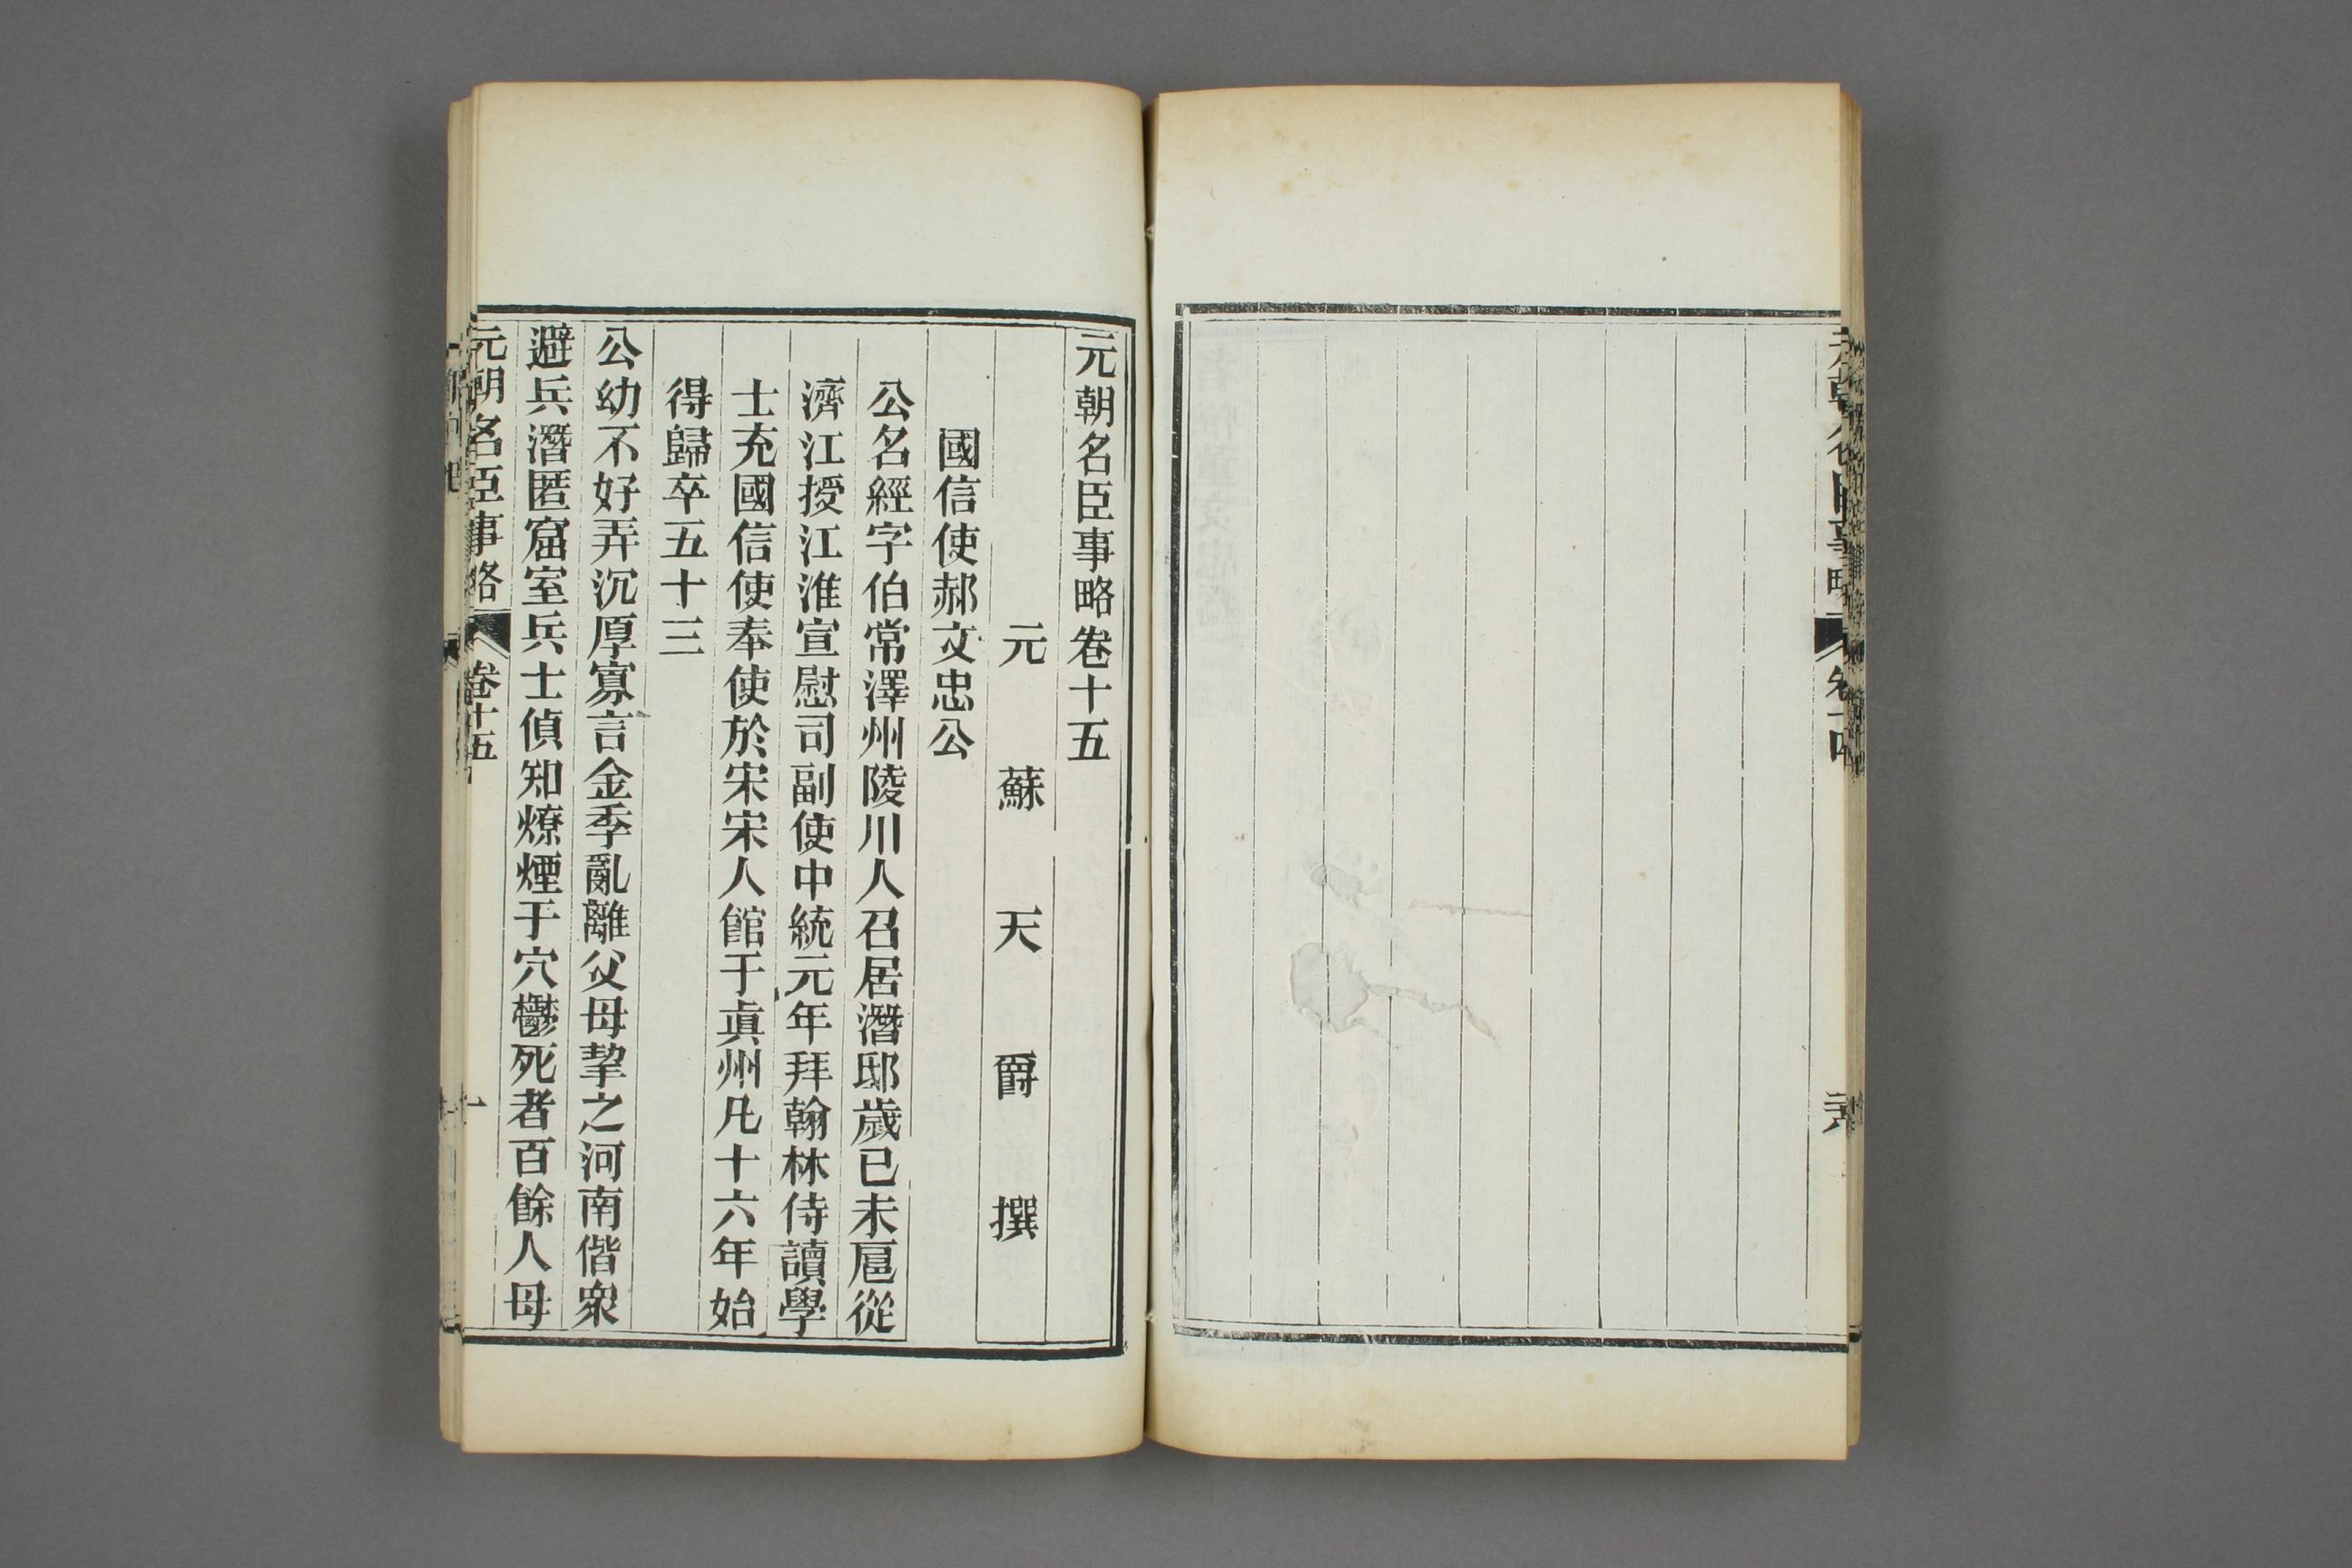 元朝名臣事略卷十五
元 蘇 天 爵 撰
國信使郝文忠公
公名經字伯常澤州陵川人召居潛邸歲已未扈從
濟江授江淮宣慰司副使中統元年拜翰林侍讀學
士充國信使奉使於宋宋人館于眞州凡十六年始
得歸卒五十三
公幼不好弄沉厚寡言金季亂離父母挈之河南偕衆
避兵潛匿窟室兵士偵知燎煙于穴鬱死者百餘人母
元朝名臣事略 卷十五 一